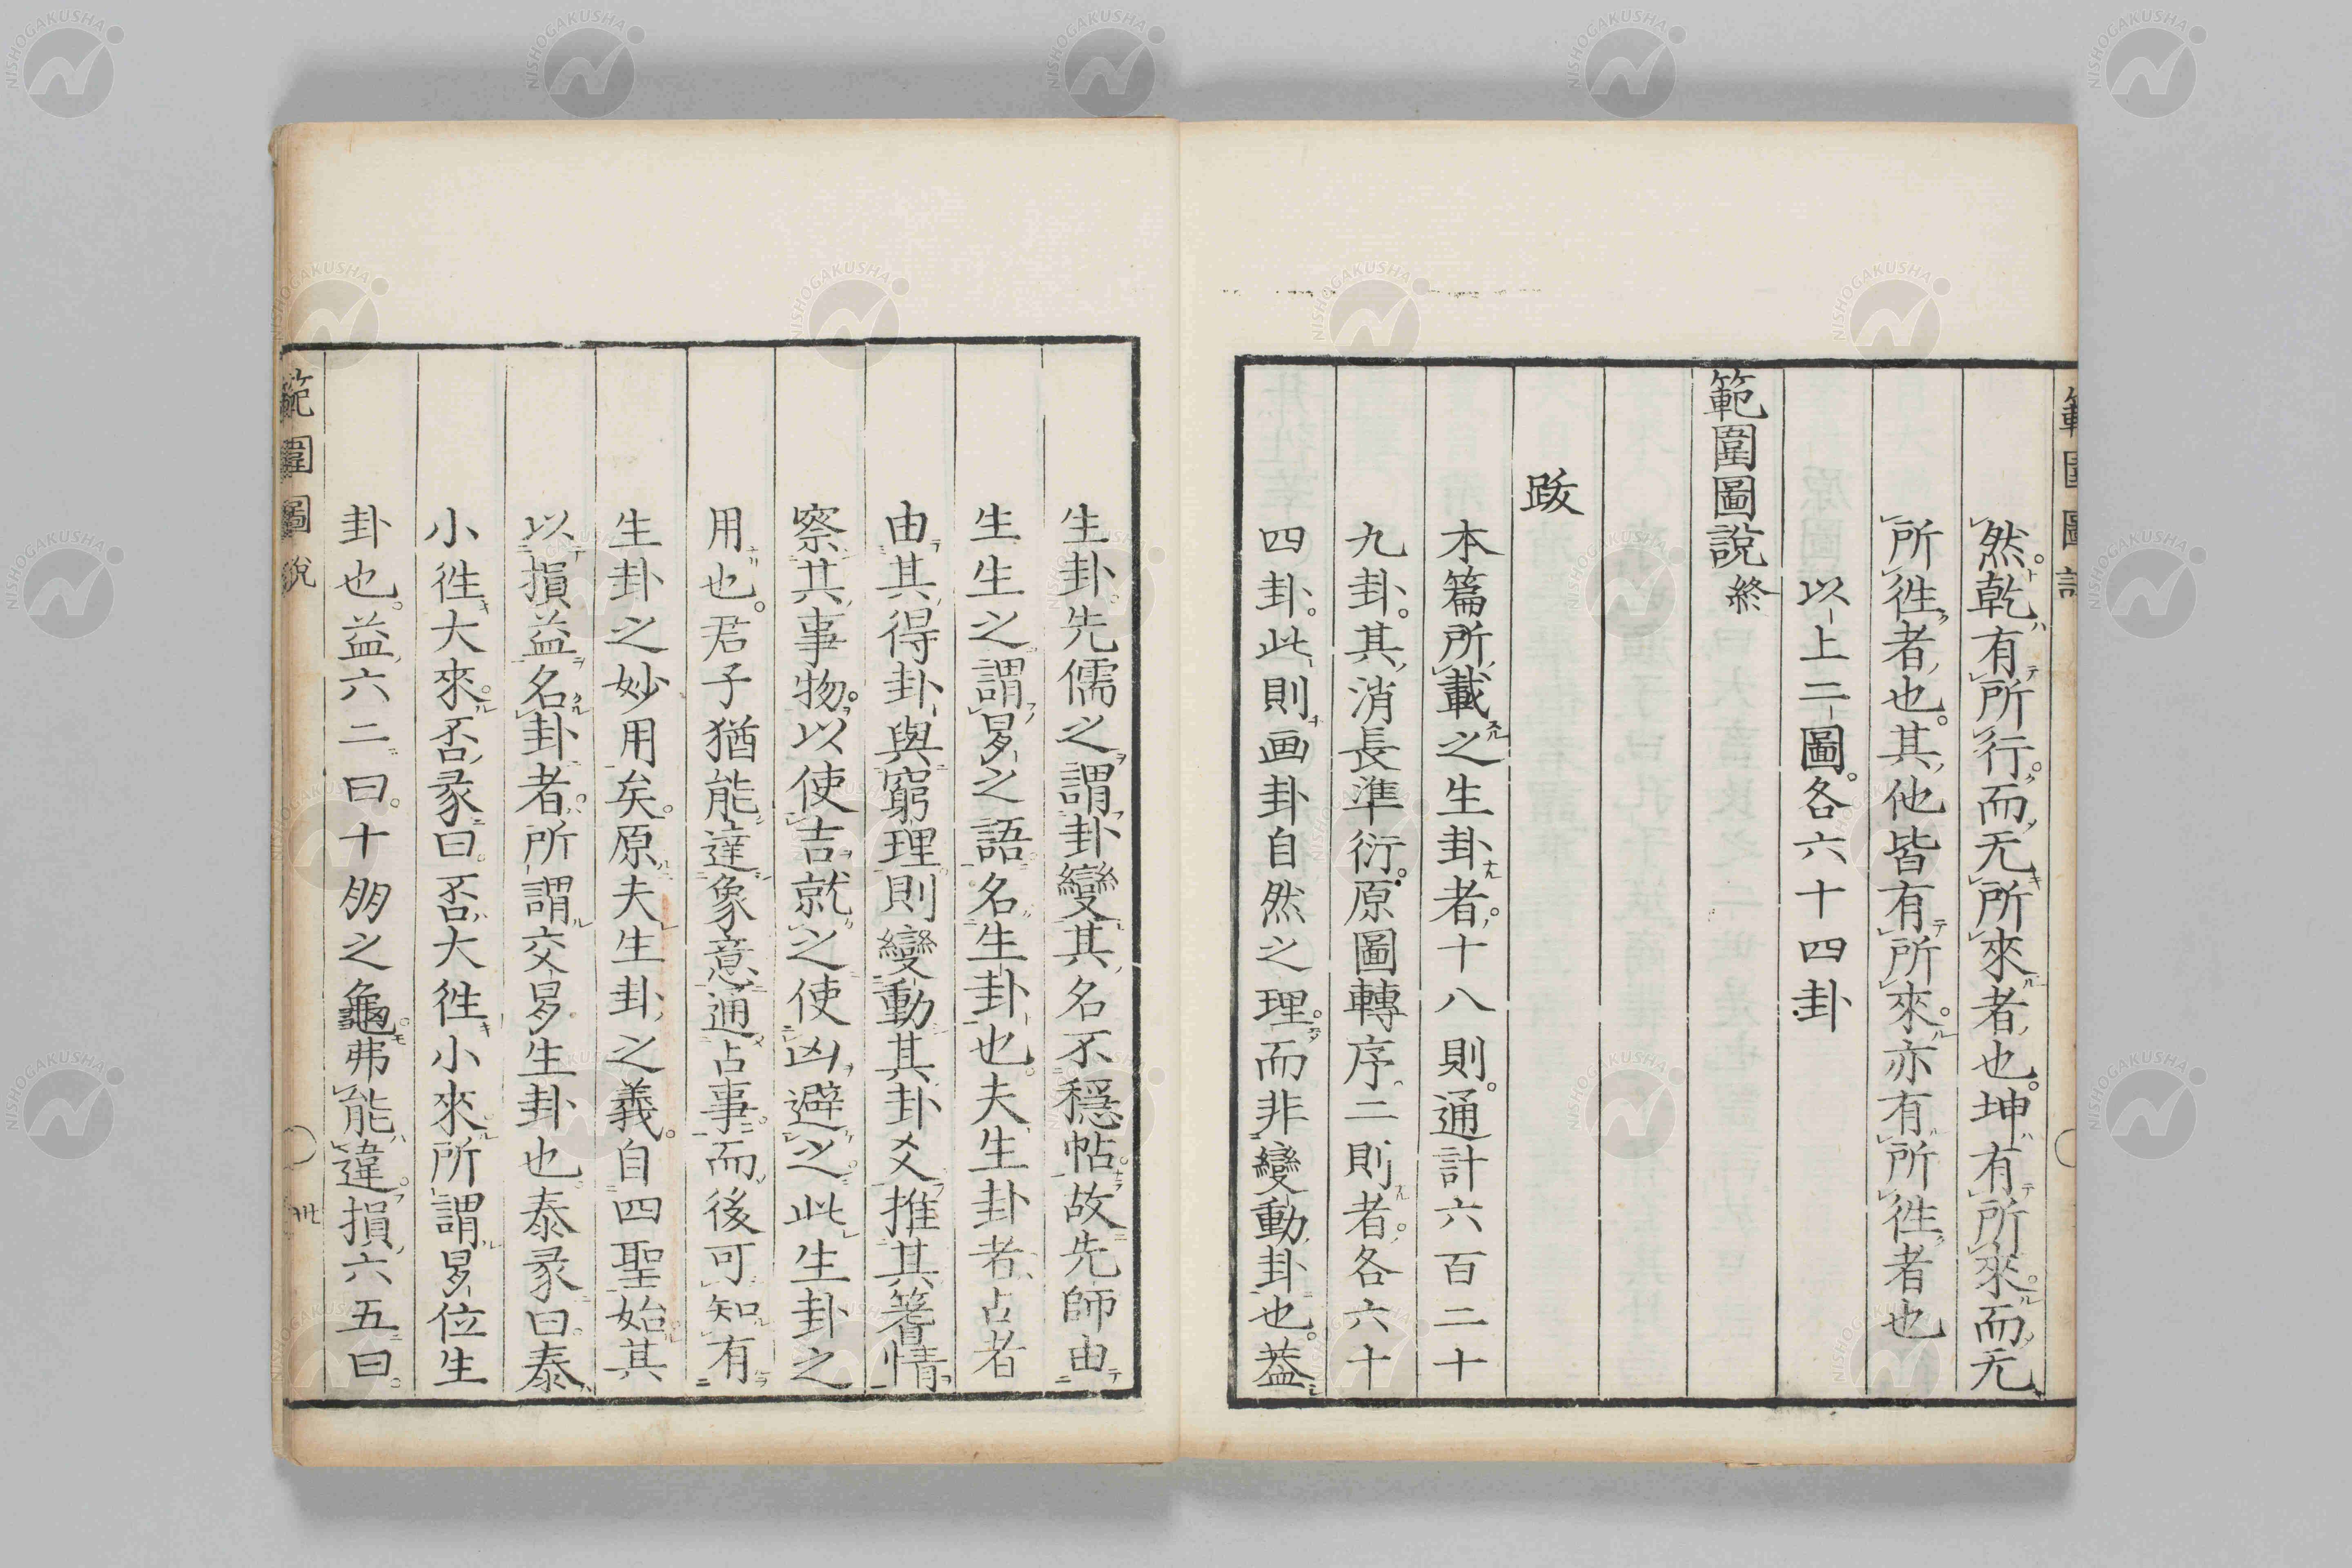 然。乾有所行。而无所來者也。坤有所來。而无
所徃者也。其他皆有所來。亦有所徃者也
以上二圖。各六十四卦
範圍圖說終
跋
本篇所載之生卦者。十八則。通計六百二十
九卦。其消長準衍。原圖轉序二則者。各六十
四卦。此則画卦自然之理。而非變動卦也。葢
生卦。先儒之謂卦變。其名不穩帖。故先師由
生生之謂易之語。名生卦也。夫生卦者。占者
由其得卦。與窮理則變動其卦爻。推其筭情
察其事物。以使吉就之使凶避之。此生卦之
用也。君子猶能達象意通占事。而後可知有
生卦之妙用矣。原夫生卦之義。自四聖始。其
以損益名卦者。所謂交易生卦也。泰彖曰。泰
小徃大來。否彖曰。否大徃小來。所謂易位生
卦也。益六二曰。十朋之龜。弗能違。損六五曰。
範圍圖說
卅
NISHOGAKUSHA